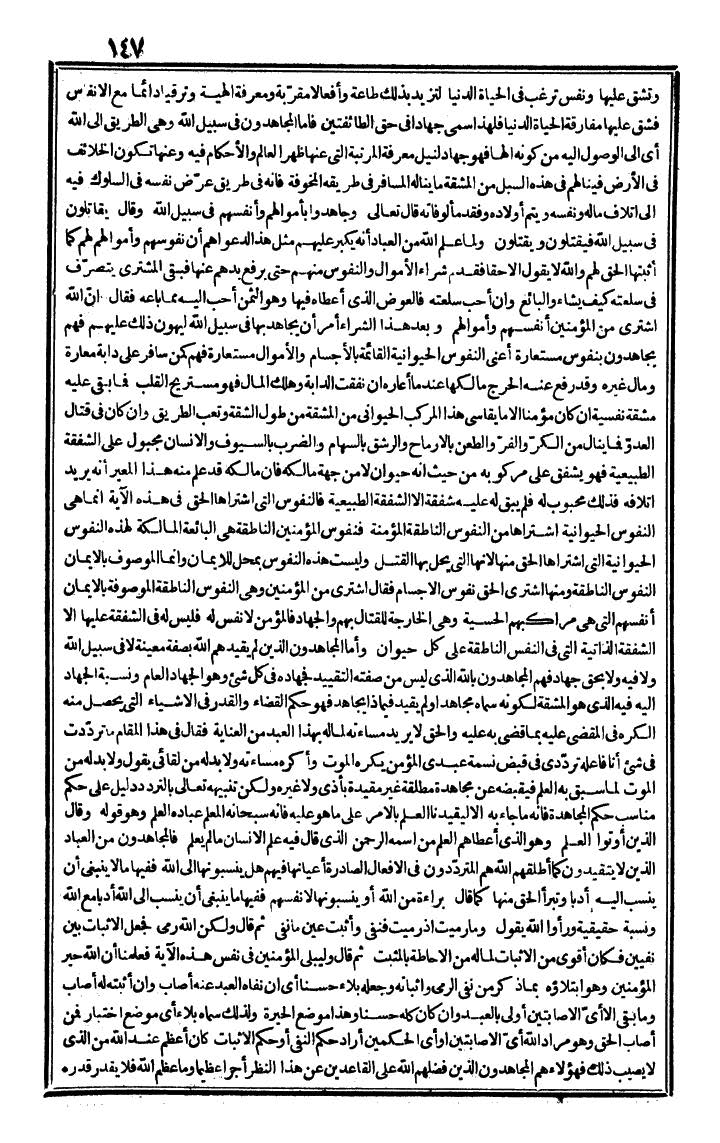 ١٤٧
وتشق عليها ونفس ترغب فى الحياة الدنيا لتزيد بذلك طاعة وأفعالا مقرّبة ومعرفة الهية وترقيا دائما مع الانفس
فشق عليها مفارقة الحياة الدنيا فلهذا سمى جهادا فى حق الطائفتين فاما المجاهدون فى سبيل الله وهى الطريق الى الله
أى الى الوصول اليه من كونه الها فهو جهاد لنيل معرفة المرتبة التى عنها ظهر العالم والأحكام فيه وعنها تكون الخلائف
فى الأرض فينالهم فى هذه السبل من المشقة ما يناله المسافر فى طريقه المخوفة فانه فى طريق عرّض نفسه فى السلوك فيه
الى اتلاف ماله ونفسه ويتم أولاده وفقد مألوفاته قال تعالى وجاهدوا بأموالهم وأنفسهم فى سبيل الله وقال يقاتلون
فى سبيل الله فيقتلون ويقتلون ولما علم الله من العباد أنه يكبر عليهم مثل هذا الدعواهم أن نفوسهم وأموالهم لهم كما
أثبتها الحق لهم والله لا يقول الا حقا فقدم شراء الأموال والنفوس منهم حتى يرفع يدهم عنها فبقى المشترى يتصرّف
فى سلعته كيف يشاء والبائع وان أحب سلعته فالعوض الذى أعطاه فيها وهو الثمن أحب اليه مما باعه فقال انّ الله
اشترى من المؤمنين أنفسهم وأموالهم وبعد هذا الشراء أمر أن يجاهد بها فى سبيل الله ليهون ذلك عليهم فهم
يجاهدون بنفوس مستعارة أعنى النفوس الحيوانية القائمة بالأجسام والأموال مستعارة فهم كمن سافر على دابة معارة
ومال غيره وقد رفع عنه الحرج مالكها عند ما أعاره ان نفقت الدابة وهلك المال فهو مستريح القلب فما بقى عليه
مشقة نفسية ان كان مؤمنا الا ما يقاسى هذا المركب الحيوانى من المشقة من طول الشقة وتعب الطريق وان كان فى قتال
العدوّ فما ينال من الكرّ والفرّ والطعن بالارماح والرشق بالسهام والضرب بالسيوف والانسان مجبول على الشفقة
الطبيعية فهو يشفق على مركوبه من حيث انه حيوان لا من جهة مالكه فان مالكه قد علم منه هذا المعير أنه يريد
اتلافه فذلك محبوب له فلم يبق له عليه شفقة الا الشفقة الطبيعية فالنفوس التى اشتراها الحق فى هذه الآية انما هى
النفوس الحيوانية اشتراها من النفوس الناطقة المؤمنة فنفوس المؤمنين الناطقة هى البائعة المالكة لهذه النفوس
الحيوانية التى اشتراها الحق منها لانها التى يحل بها القتل وليست هذه النفوس بمحل للايمان وانما الموصوف بالايمان
النفوس الناطقة ومنها اشترى الحق نفوس الاجسام فقال اشترى من المؤمنين وهى النفوس الناطقة الموصوفة بالايمان
أنفسهم التى هى مراكبهم الحسية وهى الخارجة للقتال بهم والجهاد فالمؤمن لا نفس له فليس له فى الشفقة عليها الا
الشفقة الذاتية التى فى النفس الناطقة على كل حيوان وأما المجاهدون الذين لم يقيدهم الله بصفة معينة لا فى سبيل الله
ولا فيه ولا بحق جهاد فهم المجاهدون بالله الذى ليس من صفته التقييد فجهاده فى كل شئ وهو الجهاد العام ونسبة الجهاد
اليه فيه الذى هو المشقة لكونه سماه مجاهدا ولم يقيد فيماذا يجاهد فهو حكم القضاء والقدر فى الاشياء التى يحصل منه
الكره فى المقضى عليه بما قضى به عليه والحق لا يريد مساءته لما له بهذا العبد من العناية فقال فى هذا المقام ما تردّدت
فى شئ أنا فاعله تردّدى فى قبض نسمة عبدى المؤمن يكره الموت وأكره مساءته ولا بدله من لقائى يقول ولا بدله من
الموت لما سبق به العلم فيقبضه عن مجاهدة مطلقة غير مقيدة بأذى ولا غيره ولكن تنبيهه تعالى بالتردد دليل على حكم
مناسب حكم المجاهدة فانه ما جاء به الا ليقيدنا العلم بالامر على ما هو عليه فانه سبحانه المعلم عباده العلم وهو قوله وقال
الذين أوتوا العلم وهو الذى أعطاهم العلم من اسمه الرحمن الذى قال فيه علم الانسان ما لم يعلم فالمجاهدون من العباد
الذين لا يتقيدون كما أطلقهم الله هم المتردّدون فى الافعال الصادرة أعيانها فيهم هل ينسبونها الى الله ففيها ما لا ينبغى أن
ينسب اليه أدبا وتبرأ الحق منها كما قال براءة من الله أو ينسبونها لانفسهم ففيها ما ينبغى أن ينسب الى الله أدبا مع الله
ونسبة حقيقية ورأوا الله يقول وما رميت اذ رميت فنفى وأثبت عين ما نفى ثم قال ولكن الله رمى فجعل الاثبات بين
نفيين فكان أقوى من الاثبات لما له من الاحاطة بالمثبت ثم قال وليبلى المؤمنين فى نفس هذه الآية فعلمنا أن الله حير
المؤمنين وهو ابتلاؤه بما ذكر من نفى الرمى واثباته وجعله بلاء حسنا أى ان نفاه العبد عنه أصاب وان أثبته له أصاب
وما بقى الا أىّ الاصابتين أولى بالعبد وان كان كله حسنا وهذا موضع الحيرة ولذلك سماه بلاء أى موضع اختبار فمن
أصاب الحق وهو مراد الله أىّ الاصابتين أو أىّ الحكمين أراد حكم النفى أو حكم الاثبات كان أعظم عند الله من الذى
لا يصيب ذلك فهؤلاء هم المجاهدون الذين فضلهم الله على القاعدين عن هذا النظر أجرا عظيما وما عظم الله فلا يقدر قدره